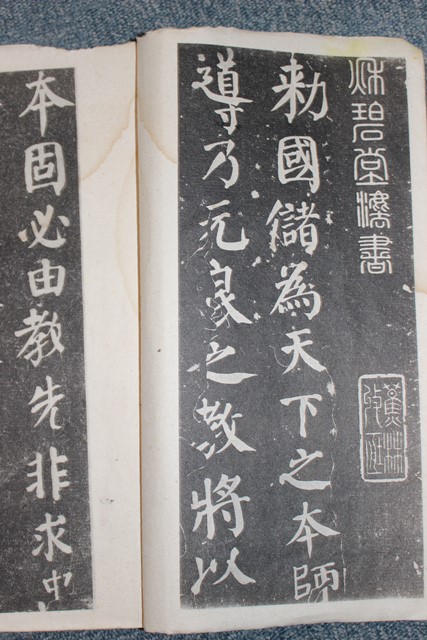 秌碧堂灋書
蕉林
勑國儲為天下之本師
導乃元良之教將以
本固必由教先非求